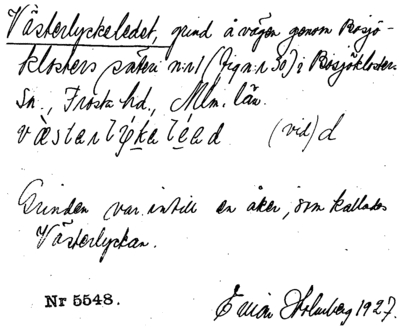 Västerlyckeledet, grind å vägen genom Bosjö-
klosters säteri n:r 1 (fig n:r 30) i Bosjökloster
Sn., Frosta hd., Mlm. län.
(vid) d
Grinden var intill en åker, som kallades
Västerlyckan.
Nr 5548.
Holmberg 1927.